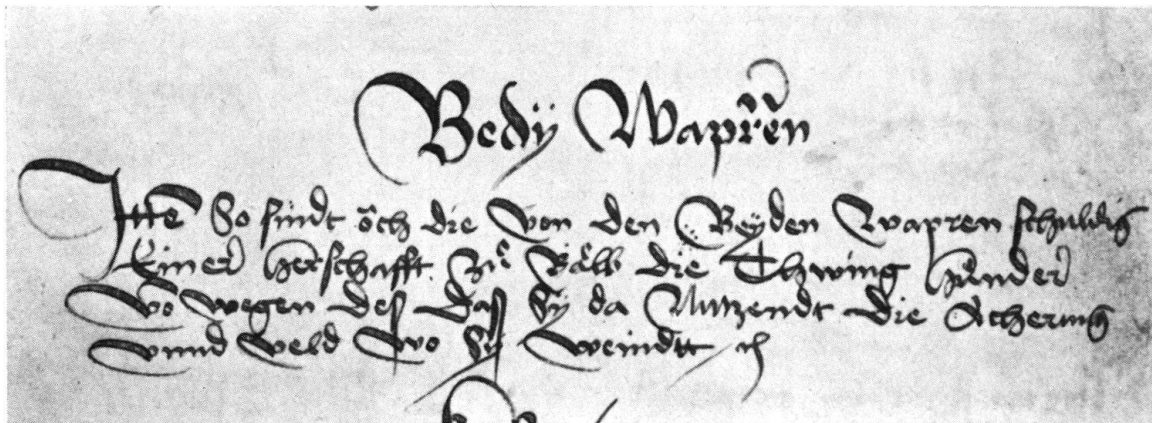 Bedÿ Wapren
Itte So sindt och die Von den Beyden Wapren schuldig
Einer Herschafft Zů Vålb die Thwing hůnder
Vo wegen deß daß Sÿ da Nutzendt die Acherung
vnnd Veld Wo Sÿ Weindtt